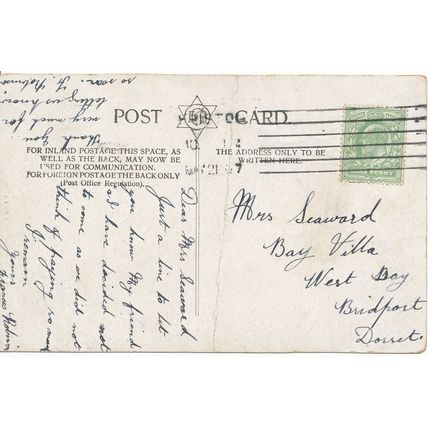 POST CARD.
FOR INLAND POSTAGE THIS SPACE, AS
WELL AS THE BACK, MAY NOW BE
USED FOR COMMUNICATION.
FOR FOREIGN POSTAGE THE BACK ONLY
(Post Office Regulation).
THE ADDRESS ONLY TO BE
WRITTEN HERE.
MY 21
Mrs Seaward
Bay Villa
West Bay
Bridport
Dorset.
Dear Mrs Seaward
Just a line to let
you know My friend
and I have decided not
to come as we did not
think of paying so much
Yours
Thank you
very much for
letting us know
so soon.